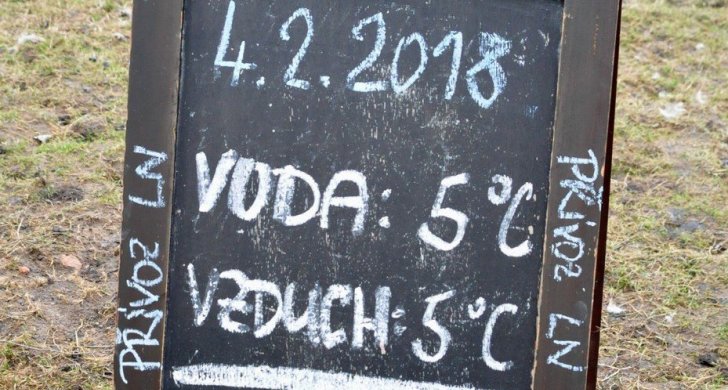 4.2.2018
VODA: 5°C
VZDUCH: 5°C
PŘÍVOZ LN
PŘÍVOZ LN